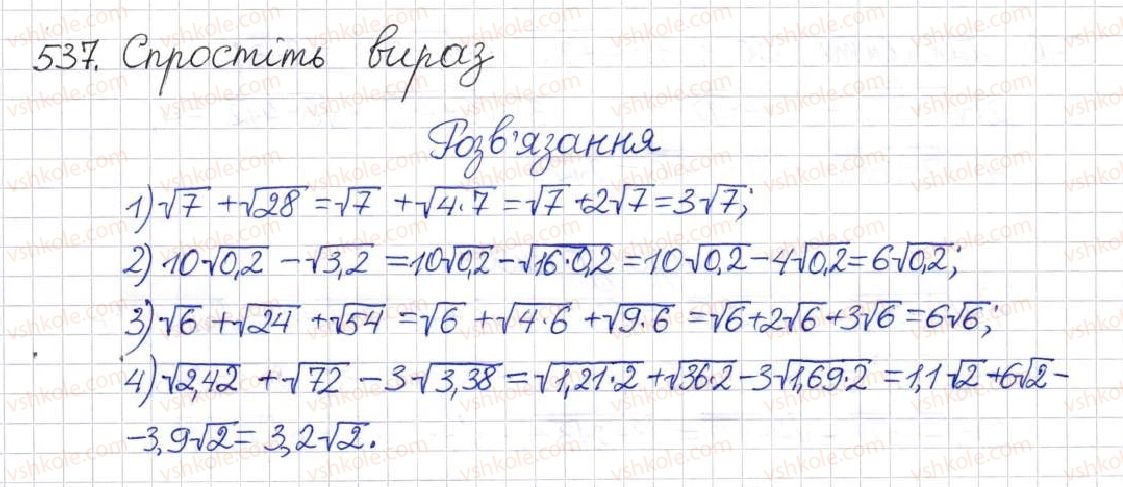 537. Спростіть вираз
Розв'язання
1) √7 + √28 = √7 + √4·7 = √7 + 2√7 = 3√7;
2) 10√0,2 - √3,2 = 10√0,2 - √16·0,2 = 10√0,2 - 4√0,2 = 6√0,2;
3) √6 + √24 + √54 = √6 + √4·6 + √9·6 = √6 + 2√6 + 3√6 = 6√6;
4) √2,42 + √72 - 3√3,38 = √1,21·2 + √36·2 - 3√1,69·2 = 1,1√2 + 6√2 -
- 3,9√2 = 3,2√2.